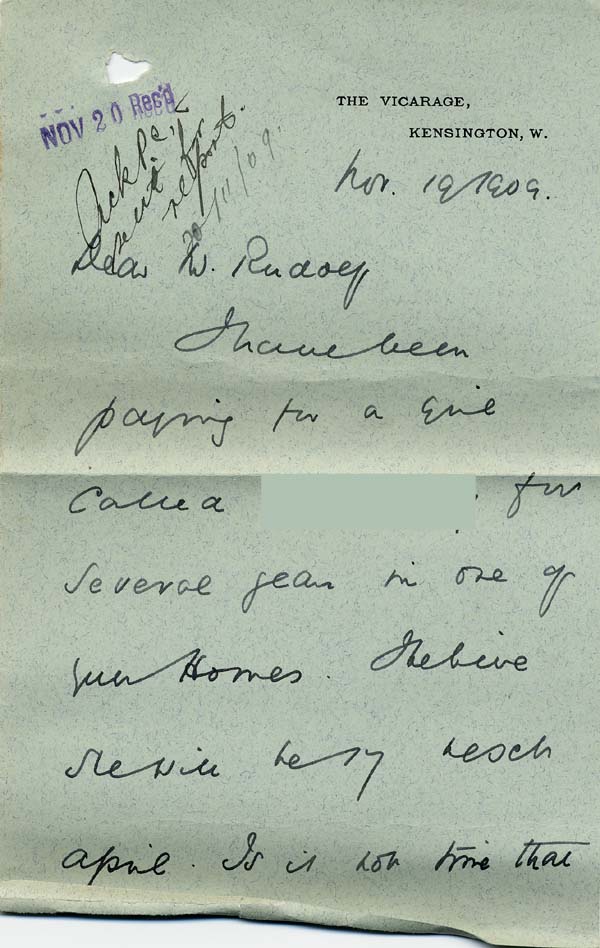 NOV 20 Rec'd
Ackd &
sent for
report.
20/11/09.
THE VICARAGE,
KENSINGTON, W.
Nov. 19 1909.
Dear Mr. Rudolf
I have been
paying for a girl
called for
several years in one of
your Homes. I believe
she will be 17 next
April. Is it not time that